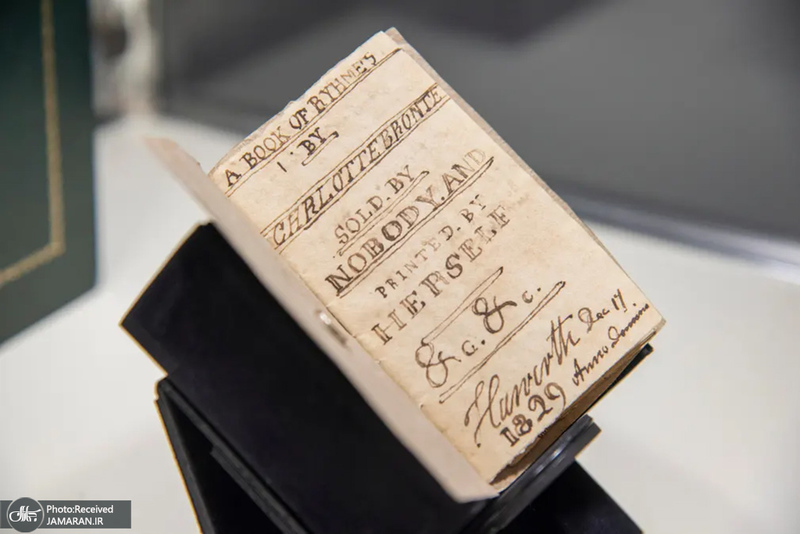 A BOOK OF RYHMES
BY
CHRLOTTE BRONTE
SOLD. BY
NOBODY. AND
PRINTED. BY
HERSELF
&c. &c.
Haworth Dec 17.
1829 Anno Domino
Photo:Received
JAMARAN.IR